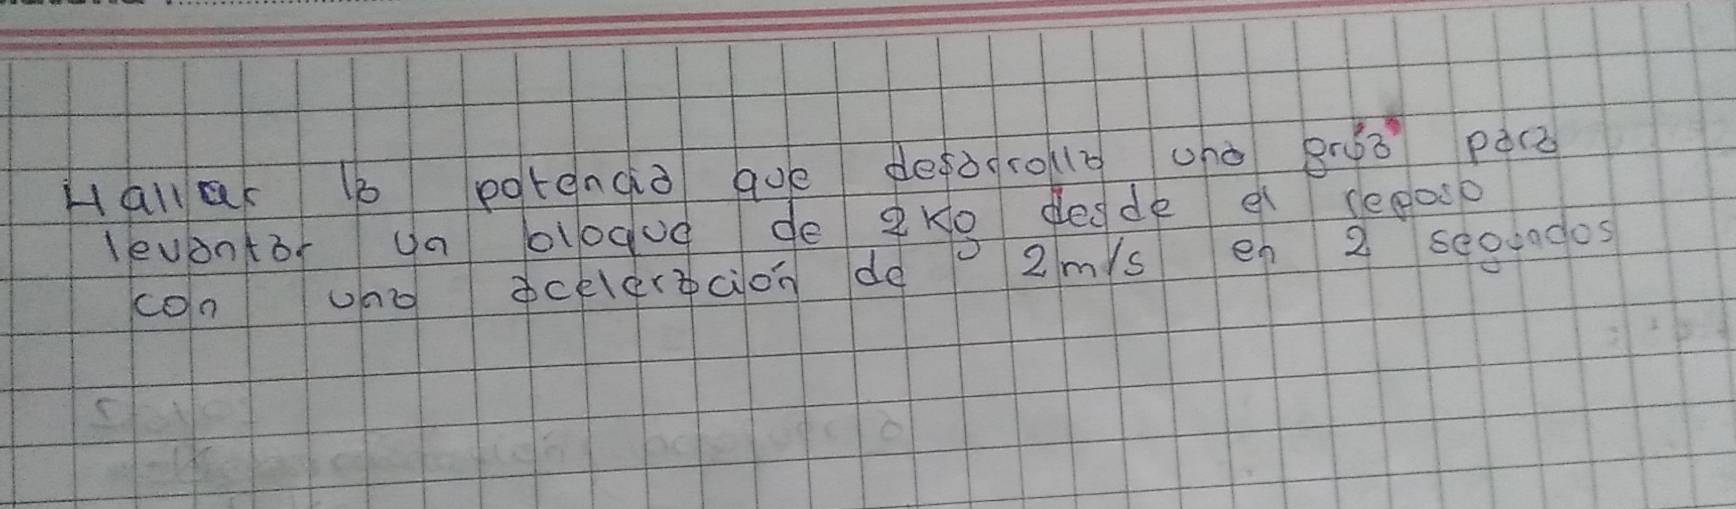 Hallar la potencia que desarrolla una grúa para
levantar un bloque de 2Kg desde el reposo
con una aceleración de 2m/s en 2 segundos